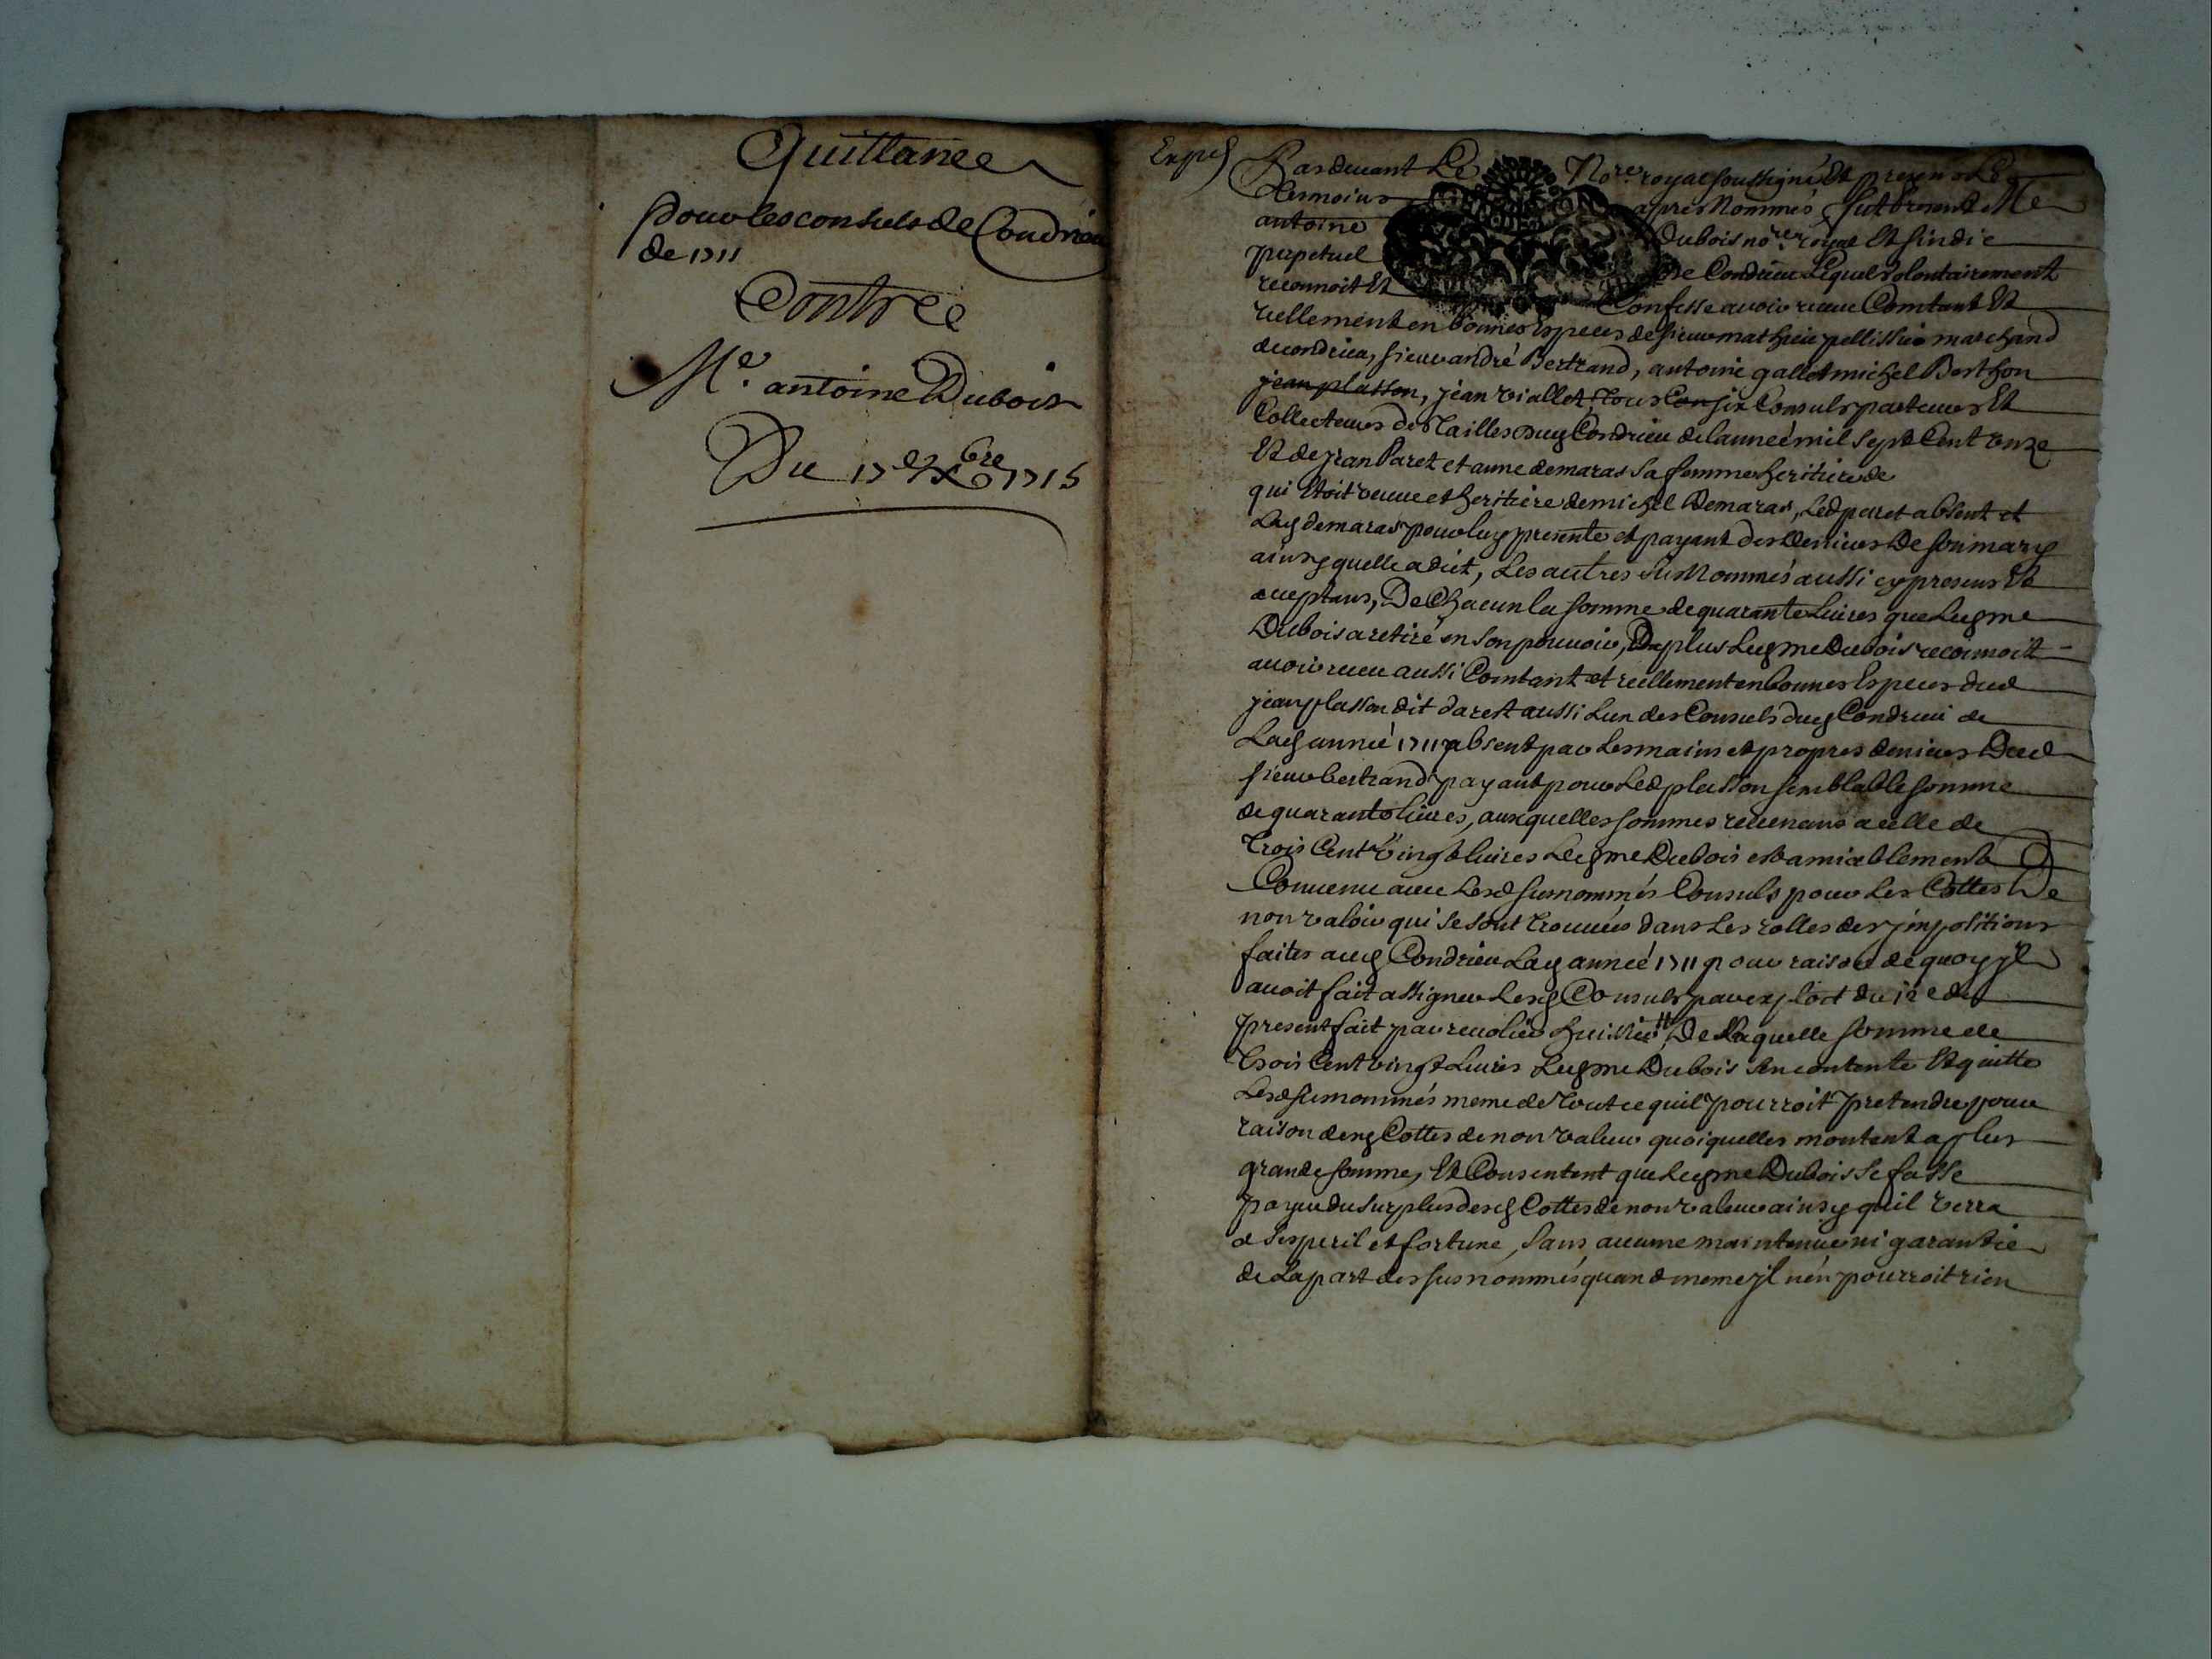 Quittance
pour les consuls de Condrieu
de 1711
Contre
Me. antoine Dubois
Du 17e Xbre 1715
Expé
Pardevant Le Nore. royal soussigné Et presens Les
tesmoins apres Nommés, fut present Me
antoine Dubois nore. royal Et sindic
perpetuel de Condrieu Lequel volontairement
reconnoit Et Confesse avoir receu Comtant Et
reellement en bonnes Especes de sieur mathieu pellissier marchand
de condrieu, sieur andré Bertrand, antoine gallet michel Berthon
jean plasson, jean viallet, Tous Consuls porteurs Et
Collecteurs des Tailles dud Condrieu de lannee mil sept Cent onze
Et de jean Paret et anne demaras sa femme heritiere de
qui Etoit veuve et heritiere de michel Demaras, Led paret absent et
Lad demaras pour luy presente et payant des deniers De son mary
ainsy quelle a dict, Les autres susNommés aussi cy presens Et
aceptans, De Chacun la somme de quarante Livres que Led me
Dubois a retiré en son pouvoir, De plus Led me Dubois reconnoit
avoir receu aussi Comtant et reellement en bonnes Especes dud
jean plasson dit darest aussi Lun des Consuls dud Condrieu de
Lad année 1711 absent par Les mains et propres deniers Dud
sieur bertrand payant pour Led plasson semblable somme
de quarante livres, auxquelles sommes revenans a celle de
Trois Cent Vingt livres Led me Dubois est amiablement
Convenu avec Lesd surnommés Consuls pour Les Cottes De
non valoir qui se sont trouvées dans Les rolles des jmpositions
faites aud Condrieu Lad année 1711 pour raison de quoy jl
avoit fait assigner Lesd Consuls par exploit du 12e du
present fait par revolier huissier, De Laquelle somme de
Trois Cent vingt Livres Led me Dubois sen contente Et quitte
Lesd surnommés meme de Tout ce quil pourroit pretendre pour
raison desd Cottes de non valeur quoiquelles montent a plus
grande somme, Et Consentent que Led me Dubois se fasse
payer du surplus desd Cottes de non valeur ainsy quil verra
a ses peril et fortune, sans aucune maintenue ni garantie
de La part des susnommés quand meme jl nen pourroit rien